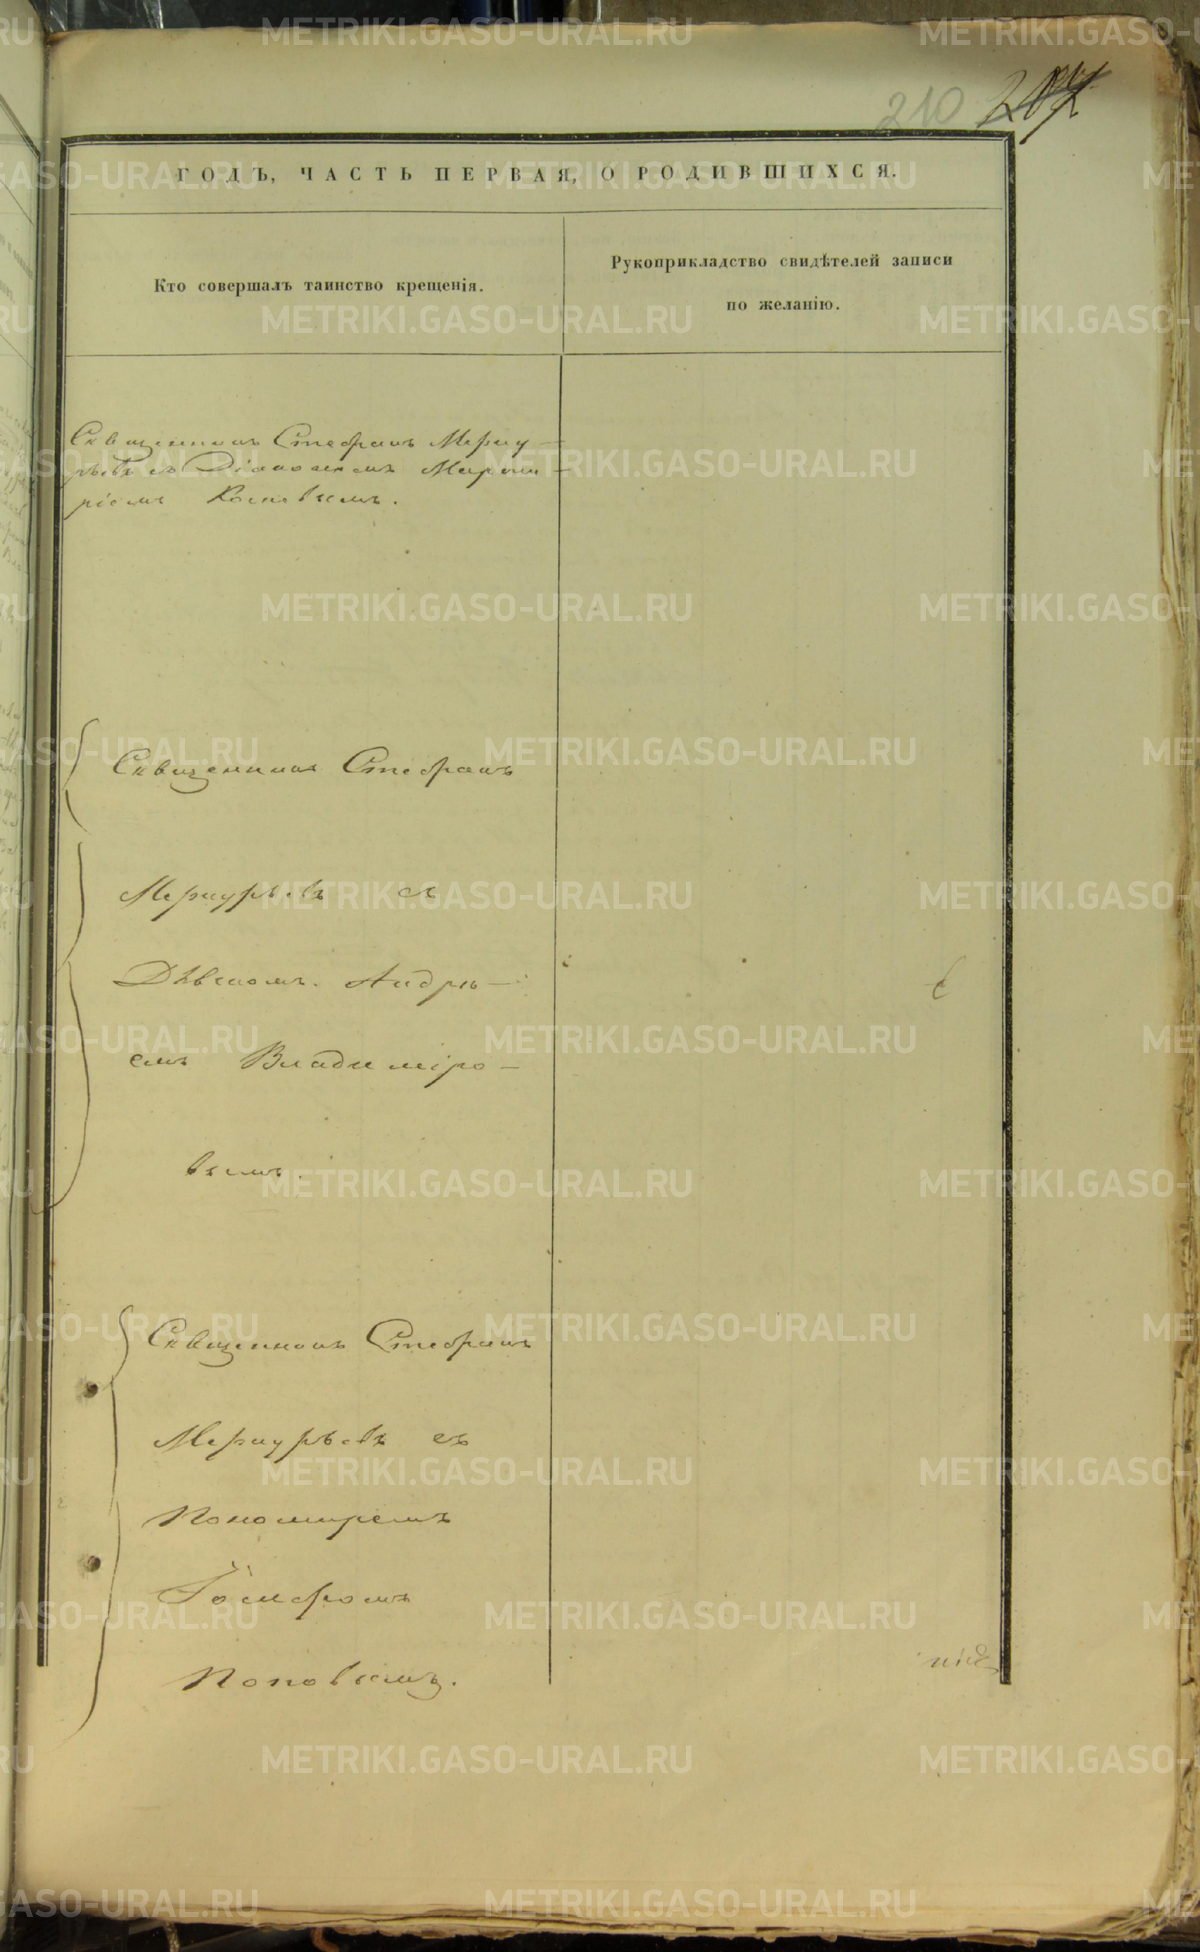 210
ГОДЪ, ЧАСТЬ ПЕРВАЯ, О РОДИВШИХСЯ.
Кто совершалъ таинство крещенія.
Рукоприкладство свидѣтелей записи
по желанію.
Священникъ Стефанъ Мерку-
рьевъ съ Діакономъ
Священникъ Стефанъ
Меркурьевъ съ
Дьячкомъ Андрѣ-
емъ Владиміро-
вымъ.
Священникъ Стефанъ
Меркурьевъ съ
Пономаремъ
Іосифомъ
Поповымъ.
METRIKI.GASO-URAL.RU